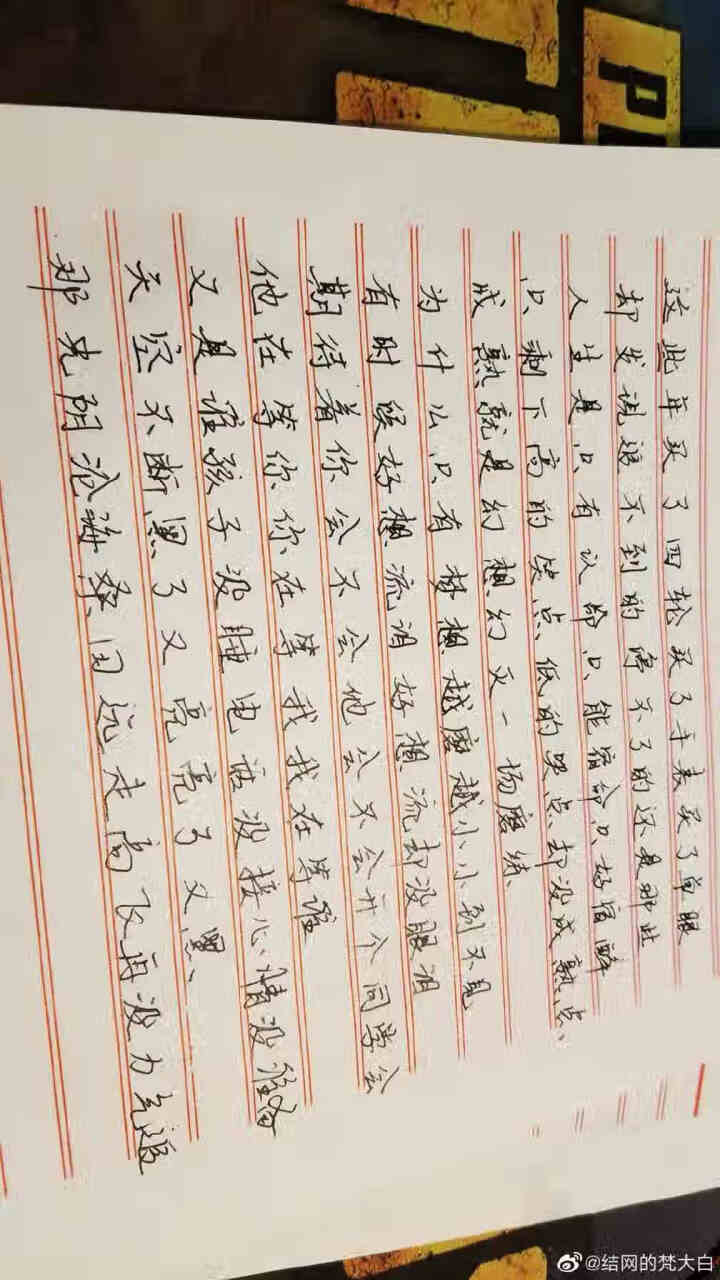 这些年买了四轮买了手表买了单眼
却发现追不到的停不了的还是那些
人生是只有认命只能宿命只好宿醉
只剩下高的笑点低的哭点却没成熟点、
成熟就是幻想幻灭一场磨练、
为什么只有梦想越磨越小小到不见
有时候好想流泪好想流却没眼泪
期待着你会不会他会不会开个同学会
他在等你你在等我我在等谁
又是谁孩子没睡电话没接心情没准备
天空不断黑了又亮亮了又黑、
那光阴沧海桑田远走高飞再没力气追
@结网的梵大白